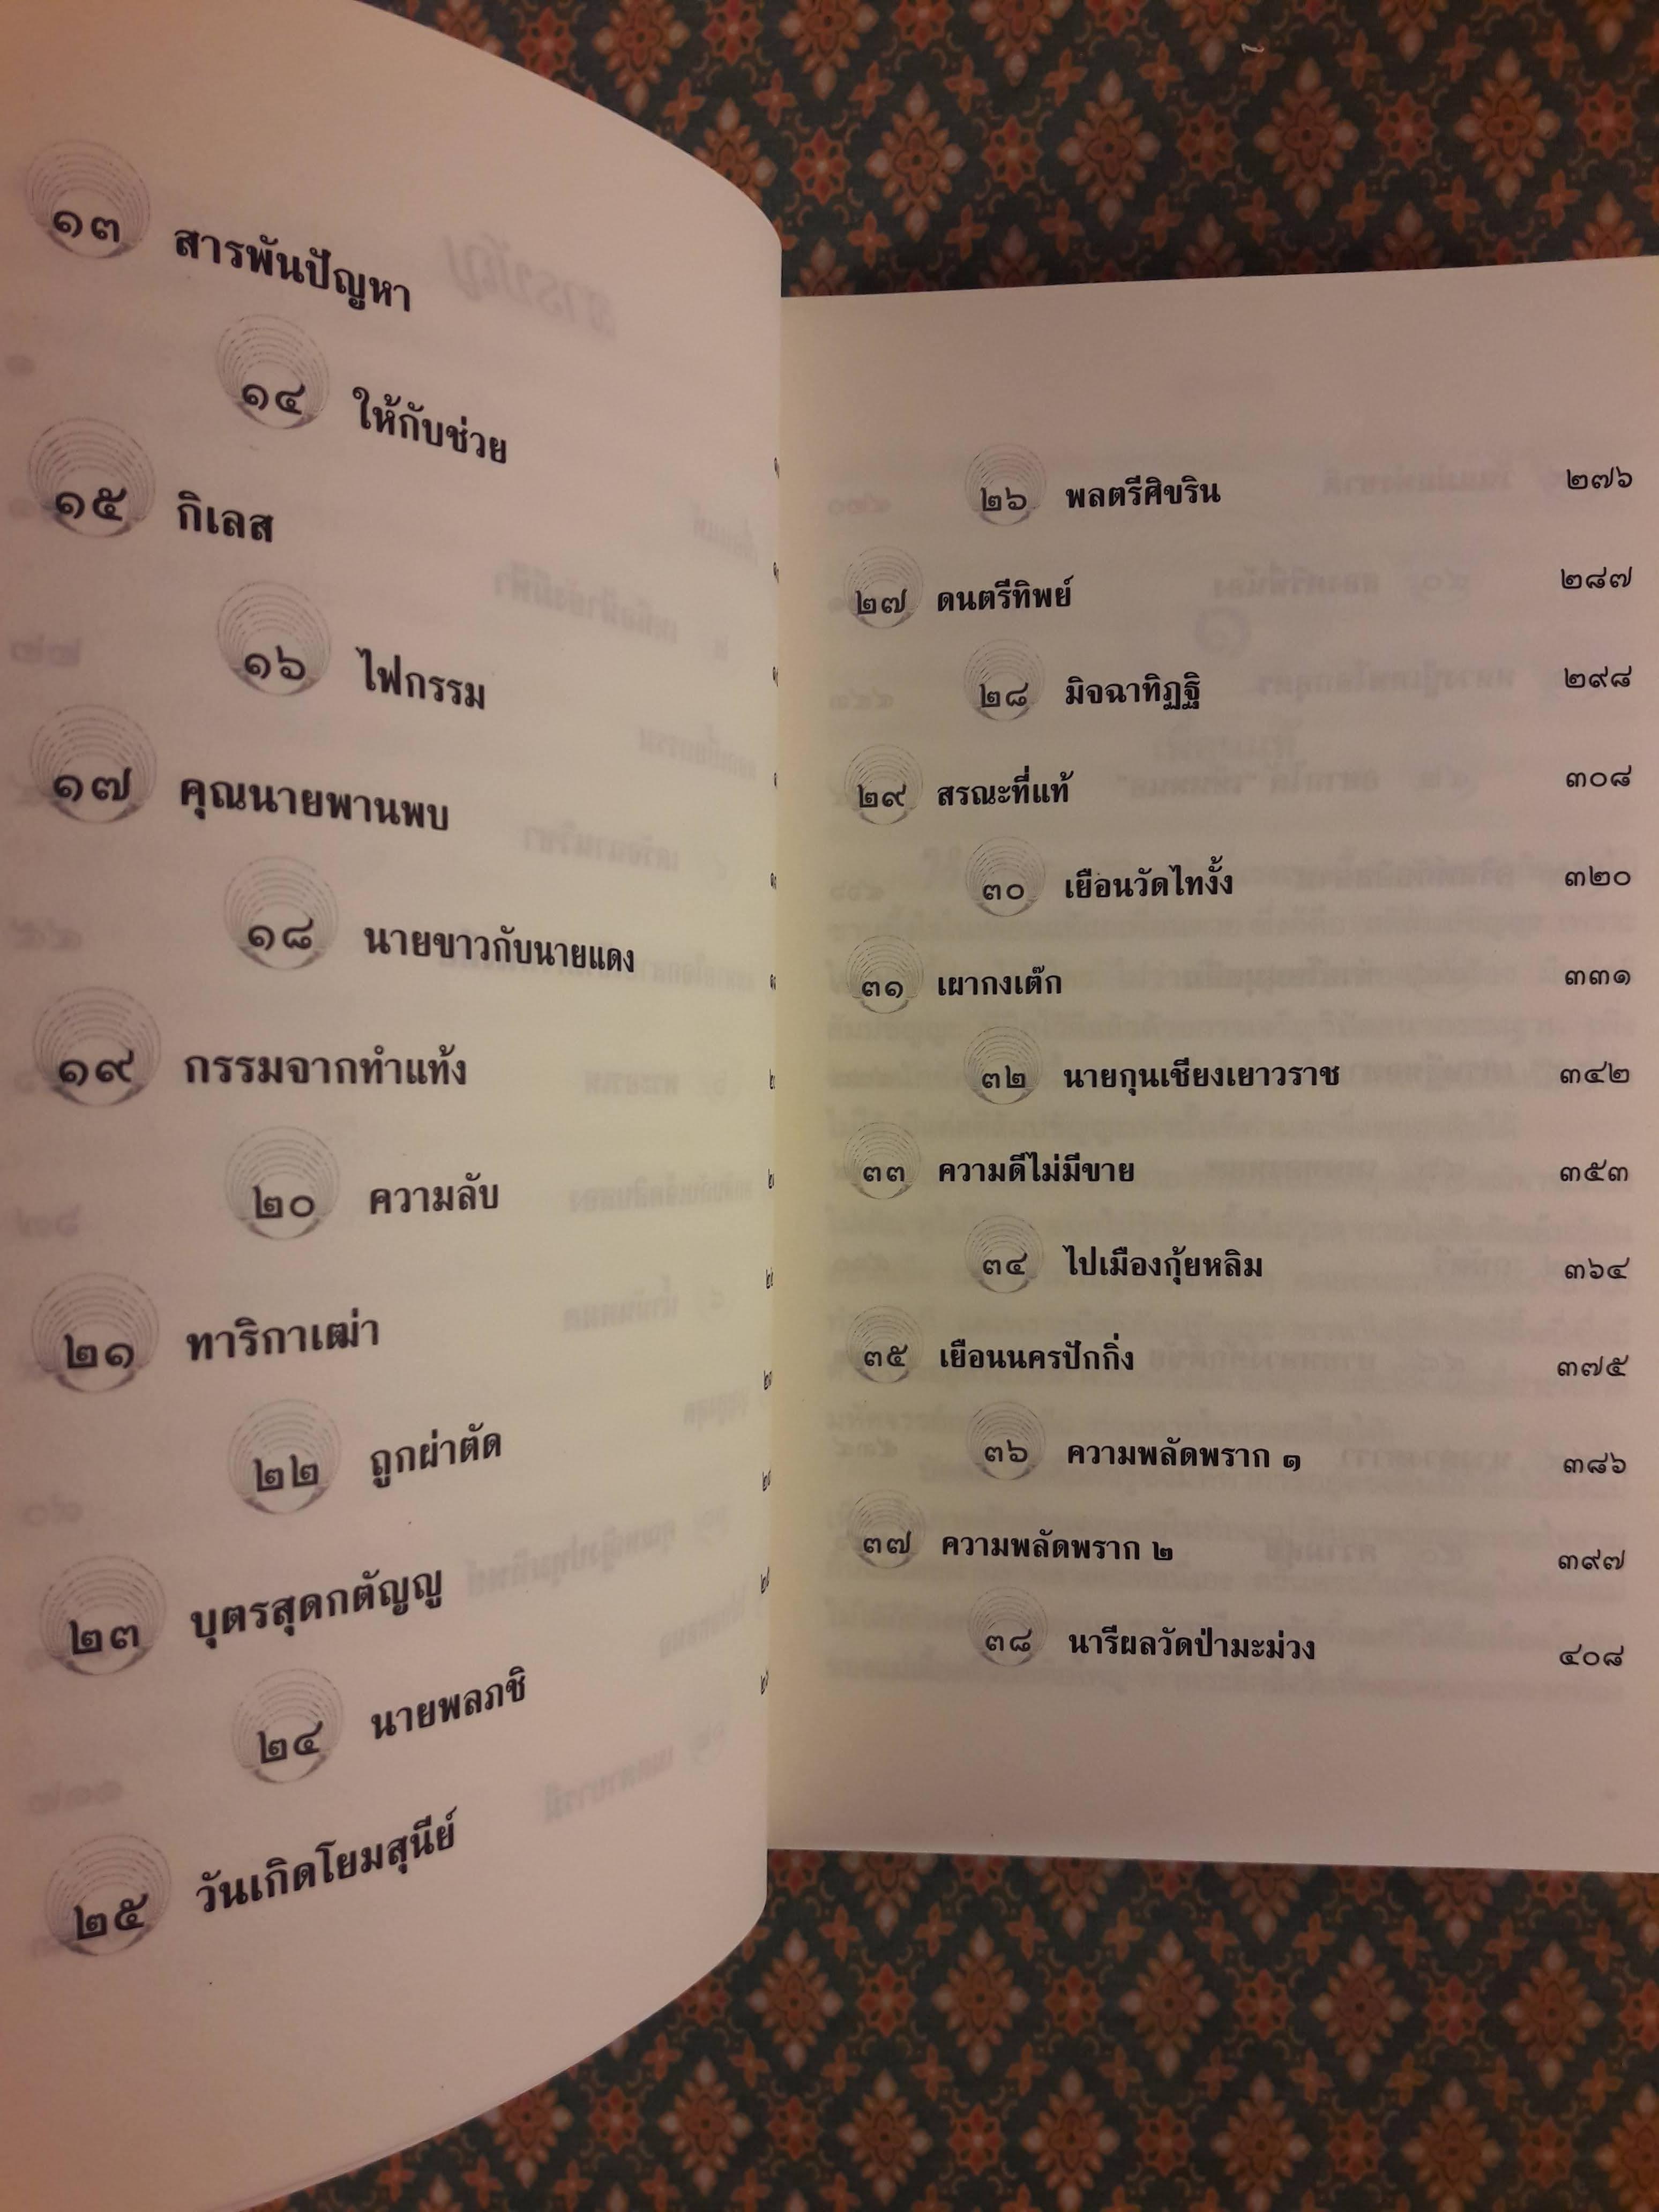 ๑๓ สารพันปัญหา
๑๔ ให้กับช่วย
๑๕ กิเลส
๑๖ ไฟกรรม
๑๗ คุณนายพานพบ
๑๘ นายขาวกับนายแดง
๑๙ กรรมจากทำแท้ง
๒๐ ความลับ
๒๑ ทาริกาเฒ่า
๒๒ ถูกผ่าตัด
๒๓ บุตรสุดกตัญญู
๒๔ นายพลภชิ
๒๕ วันเกิดโยมสุนีย์
๒๖ พลตรีศิขริน ๒๗๖
๒๗ ดนตรีทิพย์ ๒๘๗
๒๘ มิจฉาทิฏฐิ ๒๙๘
๒๙ สรณะที่แท้ ๓๐๘
๓๐ เยือนวัดไทงั้ง ๓๒๐
๓๑ เผากงเต๊ก ๓๓๑
๓๒ นายกุนเชียงเยาวราช ๓๔๒
๓๓ ความดีไม่มีขาย ๓๕๓
๓๔ ไปเมืองกุ้ยหลิม ๓๖๔
๓๕ เยือนนครปักกิ่ง ๓๗๕
๓๖ ความพลัดพราก ๑ ๓๘๖
๓๗ ความพลัดพราก ๒ ๓๙๗
๓๘ นารีผลวัดป่ามะม่วง ๔๐๘